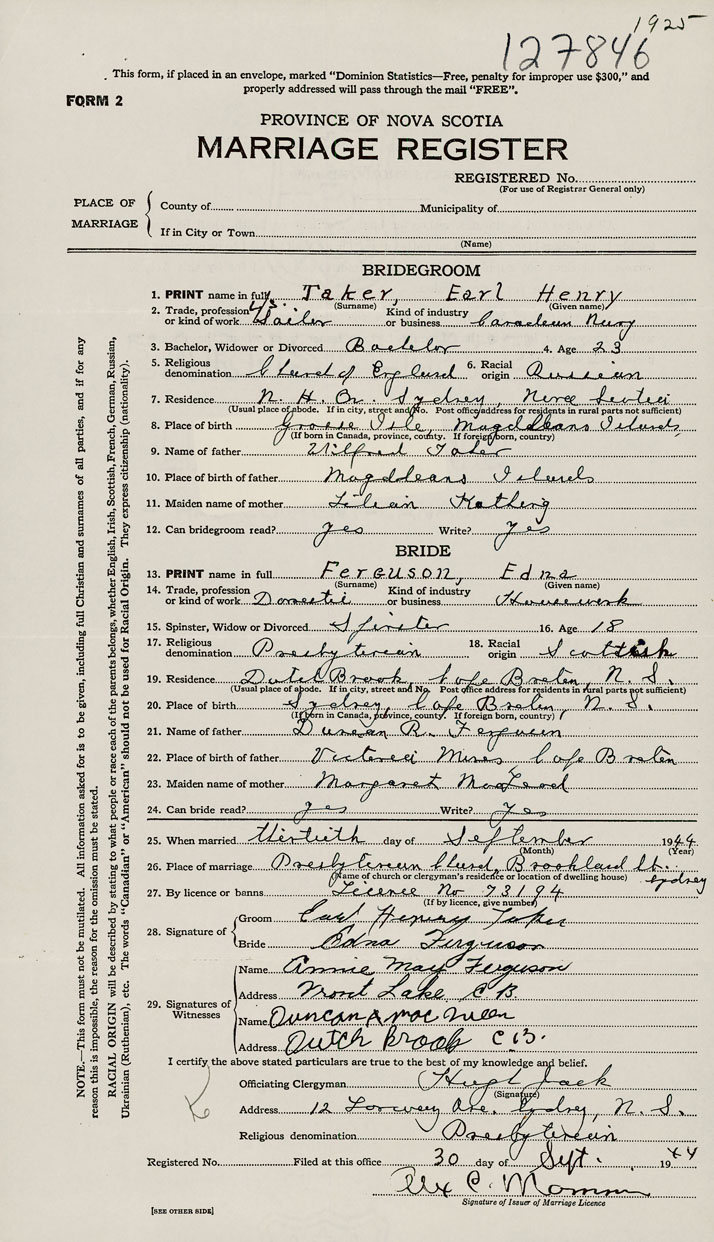 1925
127846
This form, if placed in an envelope, marked "Dominion Statistics—Free, penalty for improper use $300," and
properly addressed will pass through the mail "FREE".
FORM 2
PROVINCE OF NOVA SCOTIA
MARRIAGE REGISTER
REGISTERED No.
(For use of Registrar General only)
PLACE OF MARRIAGE
County of Municipality of
If in City or Town
(Name)
BRIDEGROOM
1. PRINT name in full Taker, Earl Henry
(Surname) (Given name)
2. Trade, profession or kind of work Sailor Kind of industry or business Canadian Navy
3. Bachelor, Widower or Divorced Bachelor 4. Age 23
5. Religious denomination Church of England 6. Racial origin Russian
7. Residence Sydney, Nova Scotia
(Usual place of abode. If in city, street and No. Post office address for residents in rural parts not sufficient)
8. Place of birth Grosse Isle, Magdleans Islands,
(If born in Canada, province, county. If foreign born, country)
9. Name of father Wilfred Taker
10. Place of birth of father Magdleans Islands
11. Maiden name of mother Lilian
12. Can bridegroom read? yes Write? yes
BRIDE
13. PRINT name in full Ferguson, Edna
(Surname) (Given name)
14. Trade, profession or kind of work Domestic Kind of industry or business Housework
15. Spinster, Widow or Divorced Spinster 16. Age 18
17. Religious denomination Presbyterian 18. Racial origin Scottish
19. Residence Dutch Brook, Cape Breton, N. S.
(Usual place of abode. If in city, street and No. Post office address for residents in rural parts not sufficient)
20. Place of birth Sydney, Cape Breton, N. S.
(If born in Canada, province, county. If foreign born, country)
21. Name of father Duncan R. Ferguson
22. Place of birth of father Victoria Mines Cape Breton
23. Maiden name of mother Margaret MacLeod
24. Can bride read? yes Write? yes
25. When married thirtieth day of September 1944
(Month) (Year)
26. Place of marriage Presbyterian Church, Brookland St. Sydney
(Name of church or clergyman's residence or location of dwelling house)
27. By licence or banns Licence No 73194
(If by licence, give number)
28. Signature of
Groom Earl Henry Taker
Bride Edna Ferguson
29. Signatures of Witnesses
Name Annie May Ferguson
Address Lake C B.
Name Duncan
Address Dutch Brook C.B.
I certify the above stated particulars are true to the best of my knowledge and belief.
Officiating Clergyman Hugh Jack
(Signature)
Address 12 Ave. Sydney, N. S.
Religious denomination Presbyterian
Registered No. Filed at this office 30 day of Sept. 1944
Signature of Issuer of Marriage Licence
[SEE OTHER SIDE]
NOTE.—This form must not be mutilated. All information asked for is to be given, including full Christian and surnames of all parties, and if for any
reason this is impossible, the reason for the omission must be stated.
RACIAL ORIGIN will be described by stating to what people or race each of the parents belongs, whether English, Irish, Scottish, French, German, Russian,
Ukrainian (Ruthenian), etc. The words "Canadian" or "American" should not be used for Racial Origin. They express citizenship (nationality).